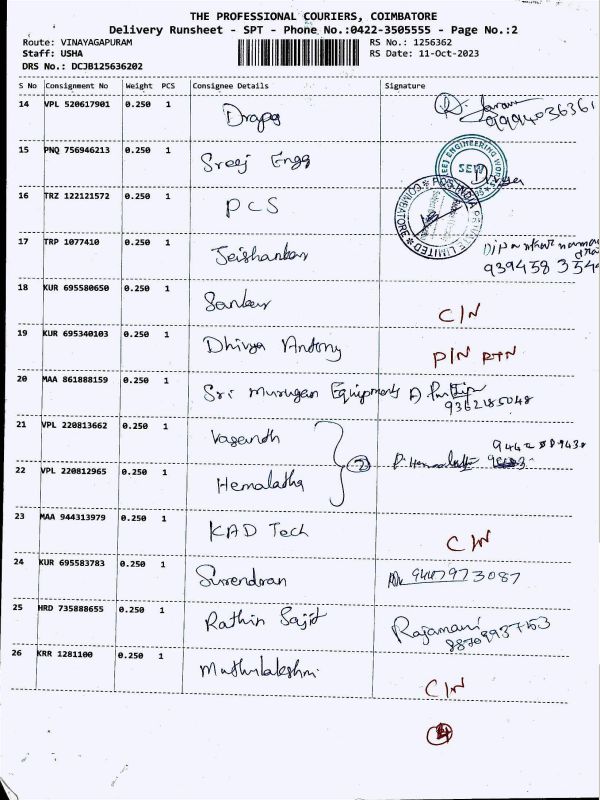 THE PROFESSIONAL COURIERS, COIMBATORE
Delivery Runsheet - SPT - Phone No.:0422-3505555 - Page No.:2
Route: VINAYAGAPURAM RS No.: 1256362
Staff: USHA RS Date: 11-Oct-2023
DRS No.: DCJB125636202
S No Consignment No Weight PCS Consignee Details Signature
14 VPL 520617901 0.250 1 9994036361
15 PNQ 756946213 0.250 1 Sreej Engg
SREEJ ENGINEERING WORKS
SEW
16 TRZ 122121572 0.250 1 PCS
PCS INDIA PRIVATE LIMITED
COIMBATORE
17 TRP 1077410 0.250 1 Jeishankar
939458 354
18 KUR 695580650 0.250 1 Sankar C/N
19 KUR 695340103 0.250 1 Dhivya Antony P/N RTN
20 MAA 861888159 0.250 1 Sri Murugan Equipments
9362185048
21 VPL 220813662 0.250 1 Vasandh
22 VPL 220812965 0.250 1 Hemaladha P. Hemaladha
2
23 MAA 944313979 0.250 1 KAD Tech C/N
24 KUR 695583783 0.250 1 Surendran 9447973087
25 HRD 735888655 0.250 1 Rathin Sajit Rajamani
88709937153
26 KRR 1281100 0.250 1 Muthulakshmi C/N
4